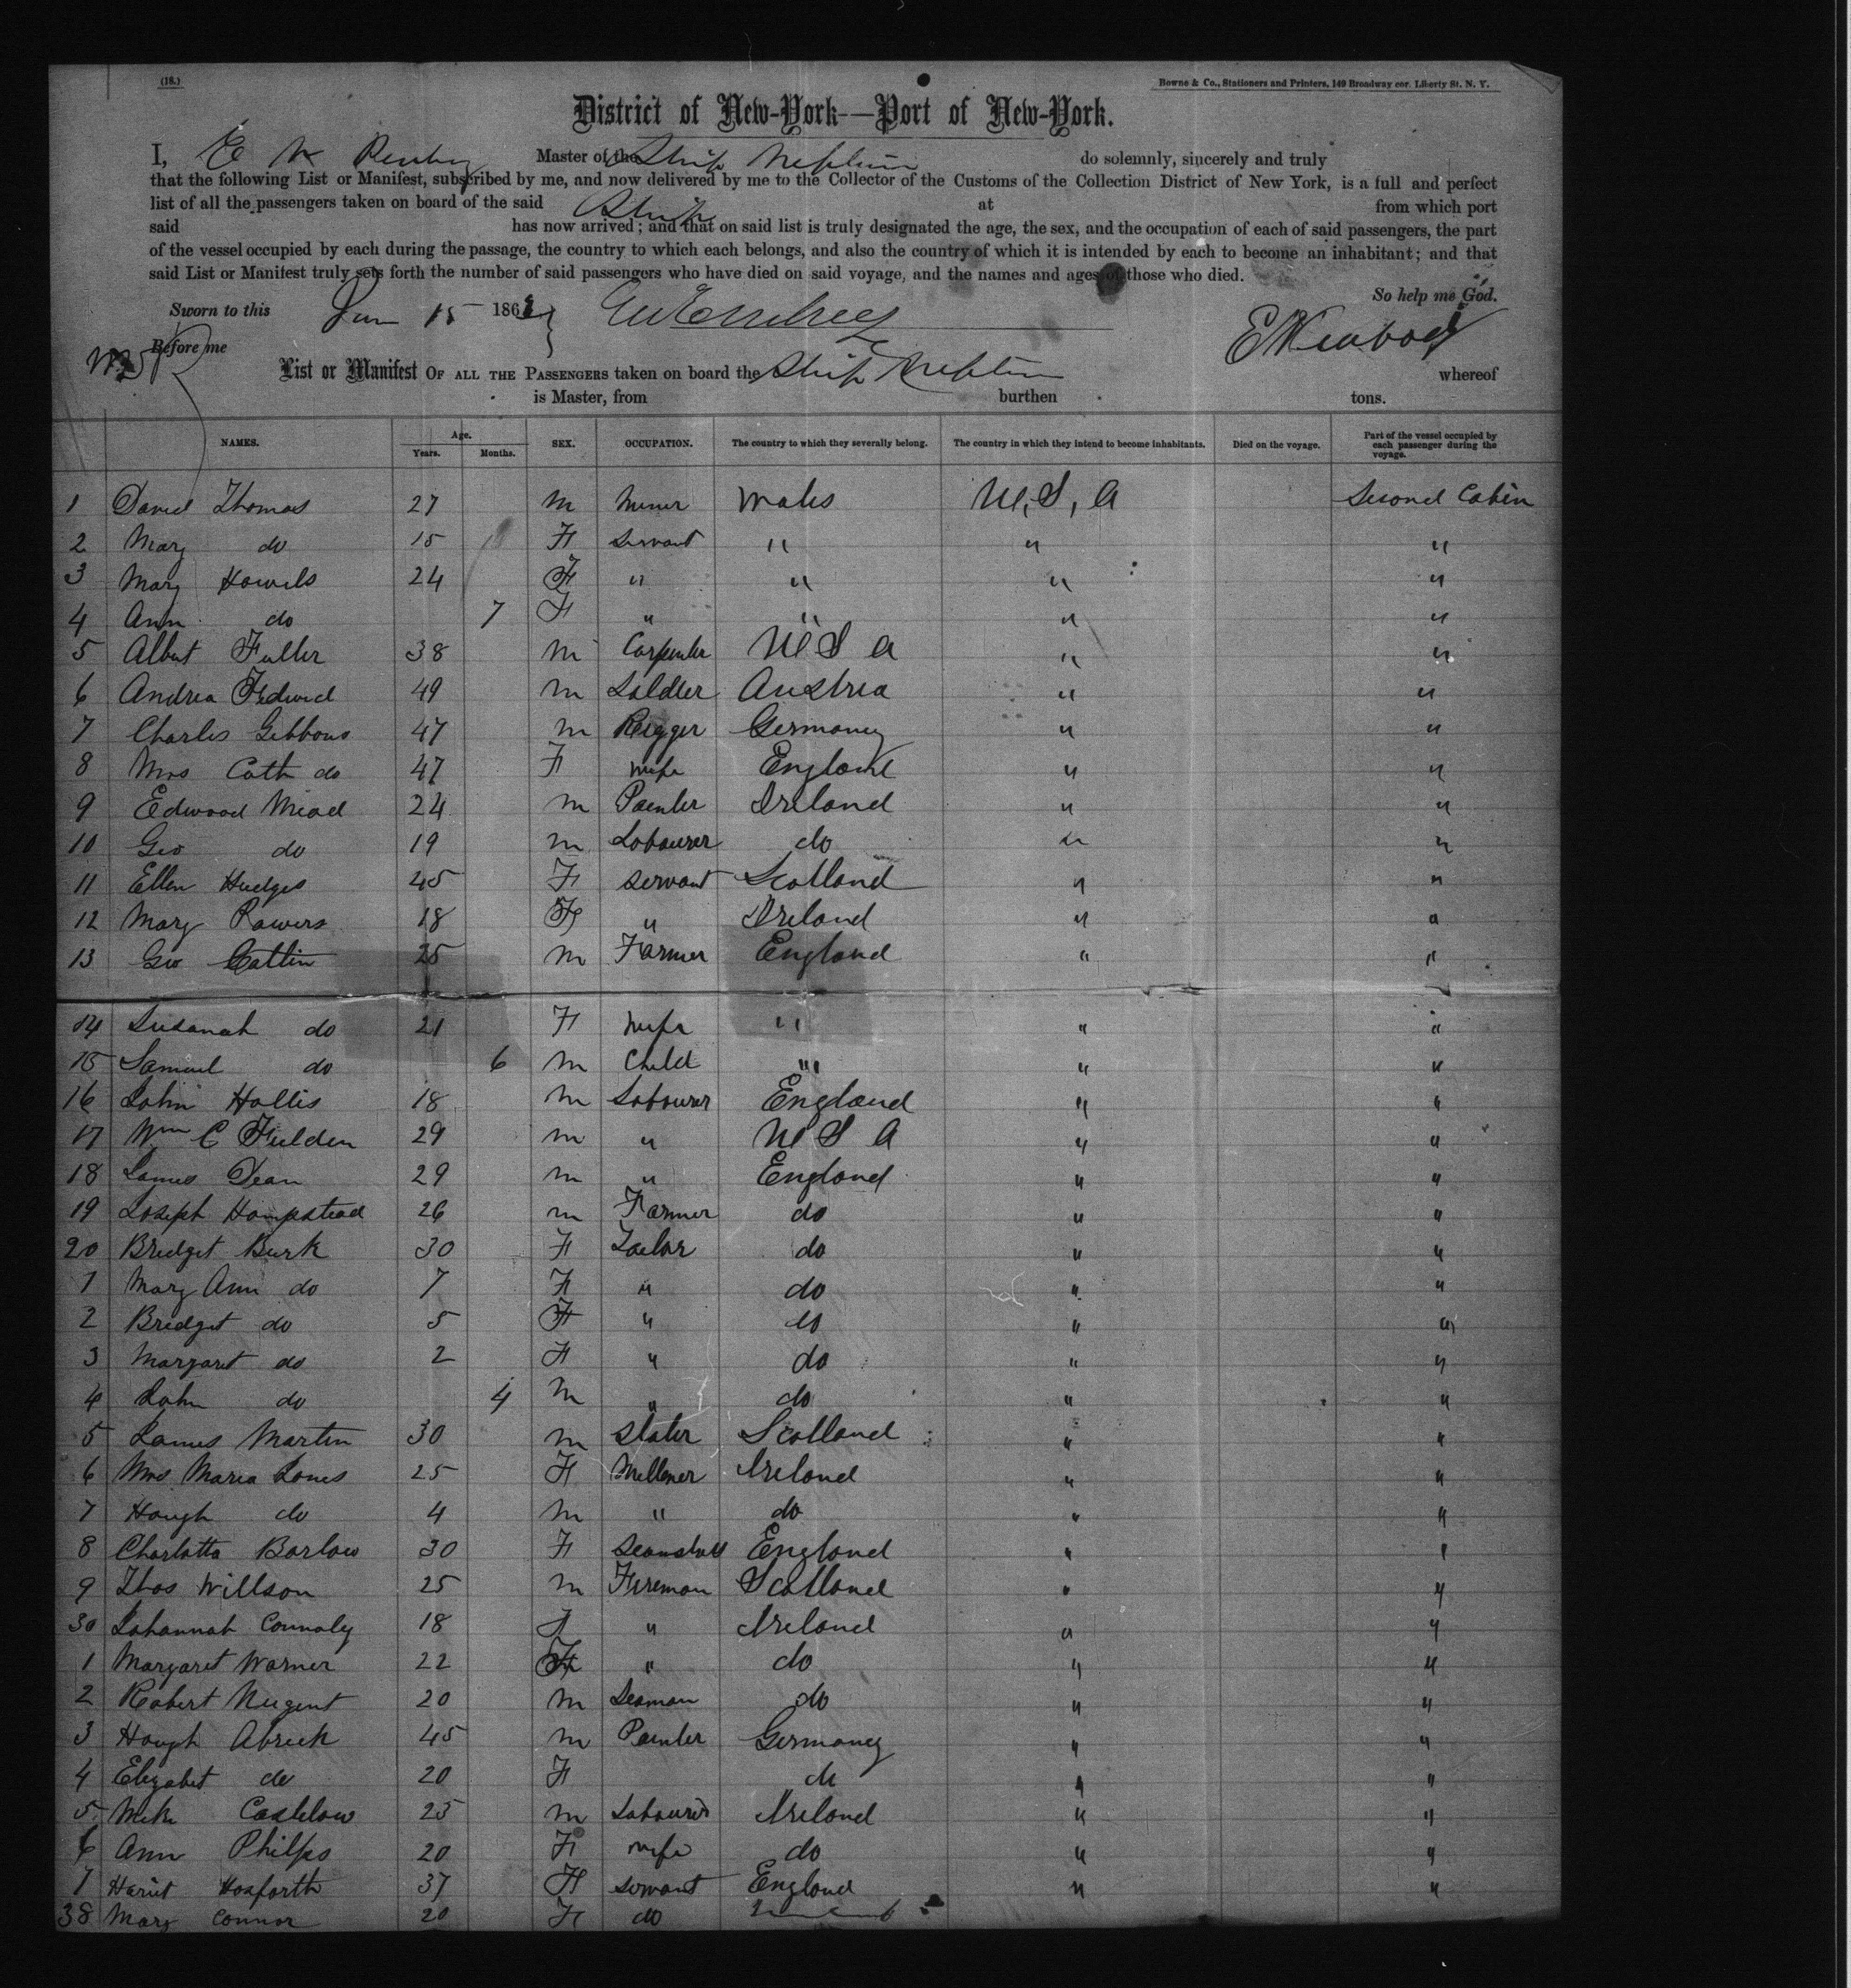 (18.)
Bowne & Co., Stationers and Printers, 149 Broadway cor. Liberty St. N. Y.
District of New-York—Port of New-York.
I, E W Master of the Ship Neptune do solemnly, sincerely and truly
that the following List or Manifest, subscribed by me, and now delivered by me to the Collector of the Customs of the Collection District of New York, is a full and perfect
list of all the passengers taken on board of the said Ship at from which port
said has now arrived; and that on said list is truly designated the age, the sex, and the occupation of each of said passengers, the part
of the vessel occupied by each during the passage, the country to which each belongs, and also the country of which it is intended by each to become an inhabitant; and that
said List or Manifest truly sets forth the number of said passengers who have died on said voyage, and the names and ages of those who died.
So help me God.
Sworn to this 15 186
Before me
List or Manifest OF ALL THE PASSENGERS taken on board the Ship Neptune whereof
is Master, from burthen tons.
NAMES. Age. Years. Months. SEX. OCCUPATION. The country to which they severally belong. The country in which they intend to become inhabitants. Died on the voyage. Part of the vessel occupied by each passenger during the voyage.
1 David Thomas 27 M Miner Wales U, S, A Second Cabin
2 Mary do 15 F Servant " " "
3 Mary Howels 24 F " " " "
4 Ann do 7 F " " " "
5 Albert Fuller 38 M Carpenter U S A " "
6 Andrea 49 M Soldier Austria " "
7 Charles Gibbons 47 M Rigger Germaney " "
8 Mrs Cath do 47 F wife England " "
9 Edwood Mead 24 M Painter Ireland " "
10 Geo do 19 M Labourer do " "
11 Ellen Hudges 45 F Servant Scotland " "
12 Mary Powers 18 F " Ireland " "
13 Geo Cattin 25 M Farmer England " "
14 Susanah do 21 F Wife " " "
15 Samuel do 6 M Child " " "
16 John Hollis 18 M Labourer England " "
17 Wm C Fulden 29 M " U S A " "
18 James Dean 29 M " England " "
19 Joseph Hompstead 26 M Farmer do " "
20 Bridget Burk 30 F Tailor do " "
1 Mary Ann do 7 F " do " "
2 Bridget do 5 F " do " "
3 Margaret do 2 F " do " "
4 John do 4 M " do " "
5 James Martin 30 M Slater Scotland " "
6 Mrs Maria Jones 25 F Millener Ireland " "
7 Hough do 4 M " do " "
8 Charlotta Barlow 30 F England " "
9 Thos Willson 25 M Fireman Scotland " "
30 Johannah Connoly 18 F " Ireland " "
1 Margaret Warner 22 F " do " "
2 Robert Nugent 20 M Seaman do " "
3 Hough Abreck 45 M Painter Germaney " "
4 Elizabet do 20 F do " "
5 Mike Castelow 25 M Labourer Ireland " "
6 Ann Philps 20 F wife do " "
7 Hariet Hosforth 37 F Servant England " "
38 Mary Connor 20 F do